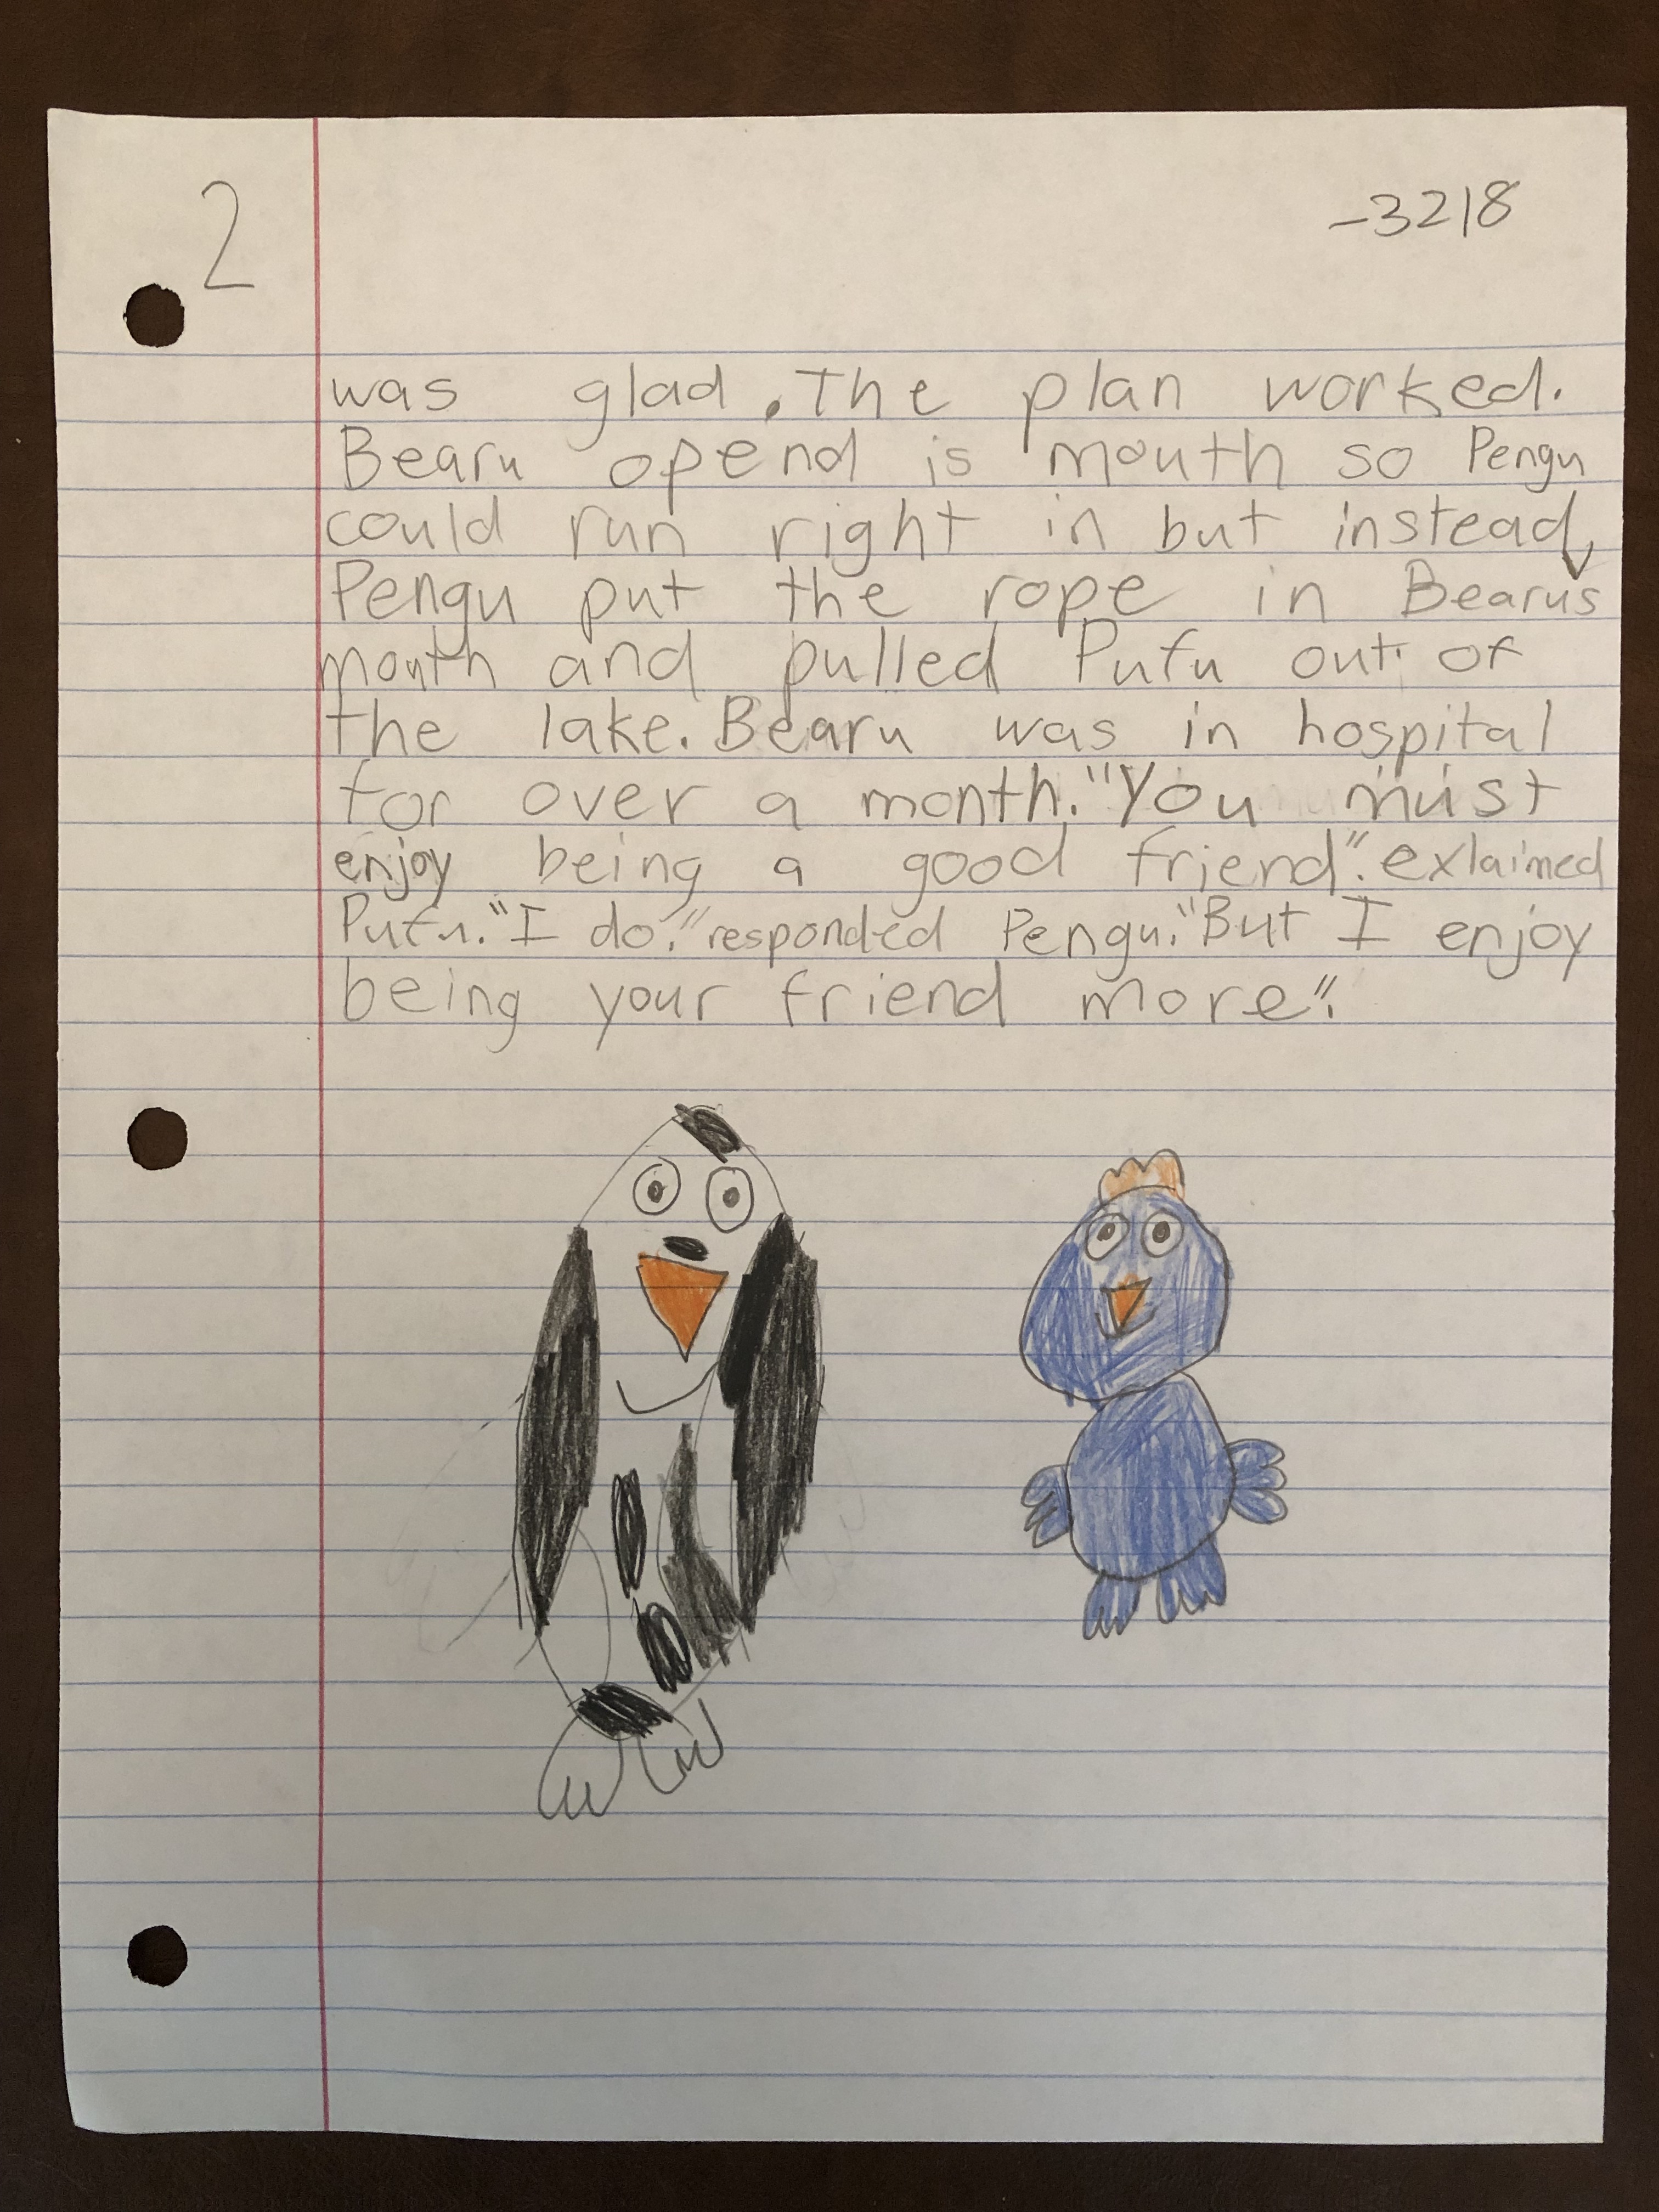 2
-3218
was glad. The plan worked.
Bearu opend is mouth so Pengu
could run right in but instead,
Pengu put the rope in Bearus
mouth and pulled Pufu out of
the lake. Bearu was in hospital
for over a month. "You must
enjoy being a good friend". exlaimed
Pufu. "I do." responded Pengu. "But I enjoy
being your friend more".